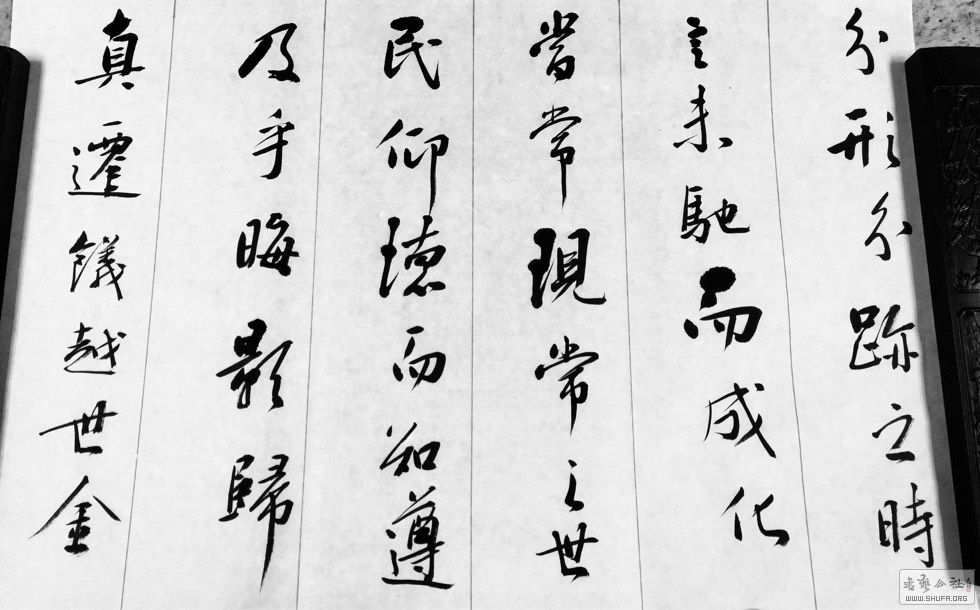 分形分跡之時
言未馳而成化
當常現常之世
民仰德而知遵
及乎晦影歸
真遷儀越世金
書藝公社
WWW.SHUFA.ORG